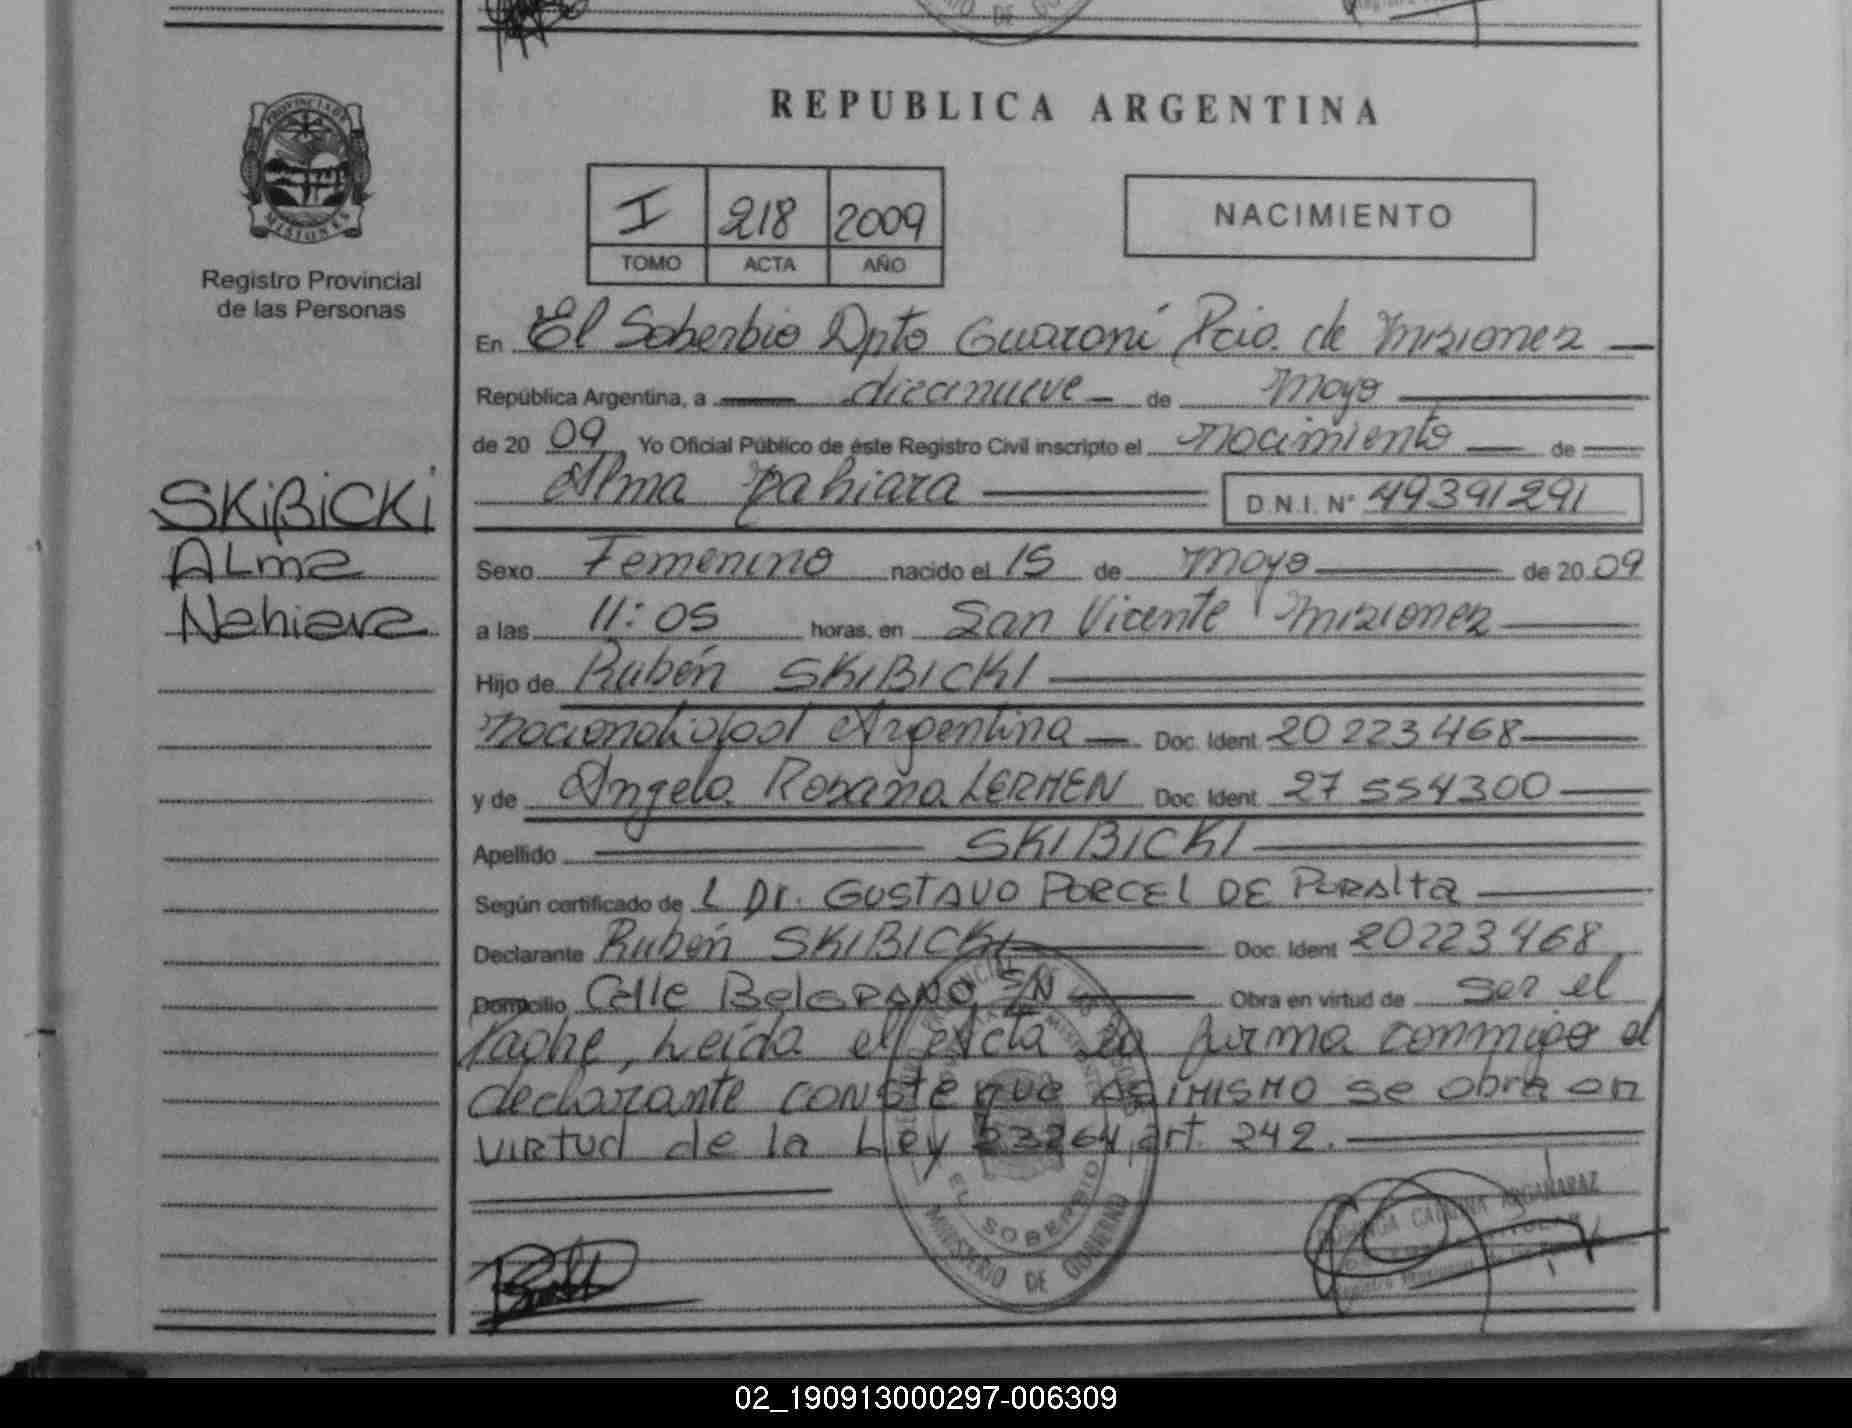 REPUBLICA ARGENTINA
PROVINCIA DE
MISIONES
Registro Provincial
de las Personas
I 218 2009
TOMO ACTA AÑO
NACIMIENTO
En El Soberbio Dpto Guaraní Pcia. de Misiones
República Argentina, a diecinueve de Mayo
de 20 09 Yo Oficial Público de éste Registro Civil inscripto el Nacimiento de
Alma Nahiara D.N.I. Nº 49391291
SKiBiCKi
ALma
Nahiara
Sexo Femenino nacido el 15 de Mayo de 20 09
a las 11:05 horas, en San Vicente Misiones
Hijo de Rubén SKIBICKI
Nacionalidad Argentina Doc. Ident 20 223 468
y de Angela Rosana LERMEN Doc. Ident 27 554300
Apellido SKIBICKI
Según certificado de L Dr. GUSTAVO PORCEL DE PERAlta
Declarante Rubén SKIBICKI Doc. Ident 20223468
Domicilio Calle BelGRANO S/N Obra en virtud de ser el
Padre, Leída el Acta la firma conmigo el
declarante conste que ASIMISMO se obra en
VIRTUD de la Ley 23264 art. 242.
EL SOBERBIO
MINISTERIO DE GOBIERNO
CATALINA ARGAÑARAZ
02_190913000297-006309